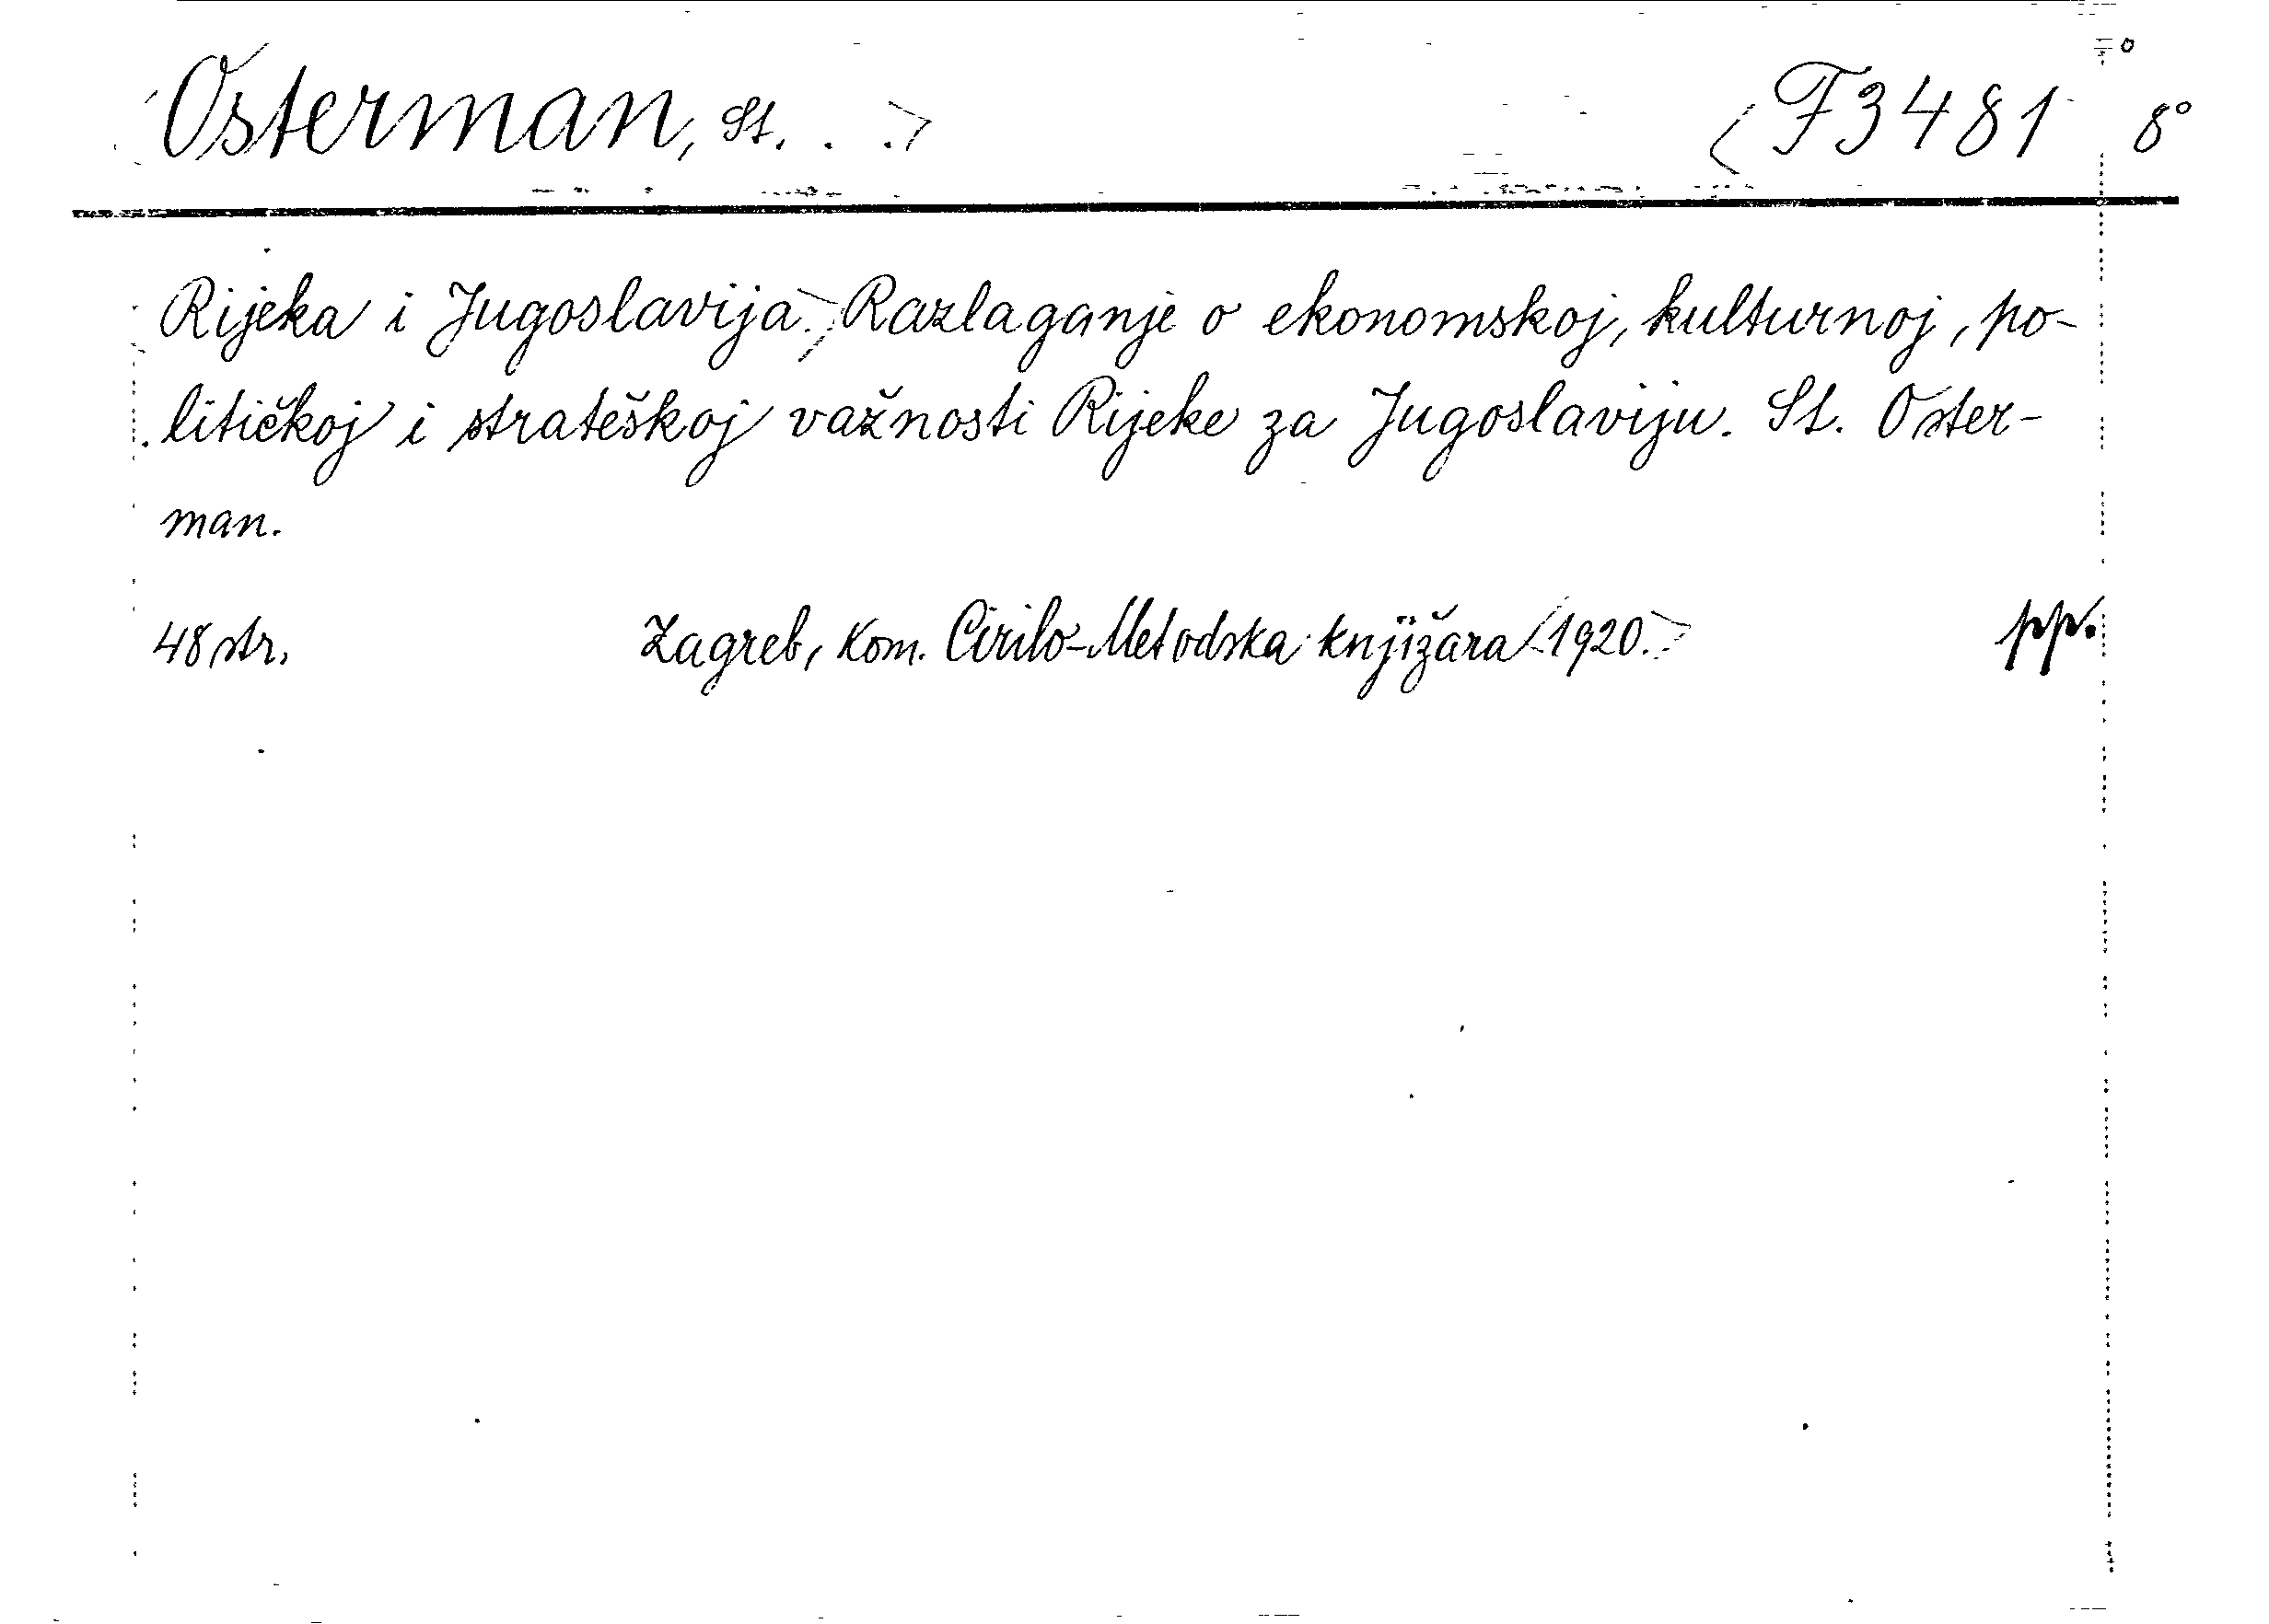 Osterman, St. . . > < F3481 8°
Rijeka i Jugoslavija.> Razlaganje o ekonomskoj, kulturnoj, po-
litičkoj i strateškoj važnosti Rijeke za Jugoslaviju. St. Oster-
man.
48 str. Zagreb, Kom. Cirilo-Metodska knjižara <1920.> pp.